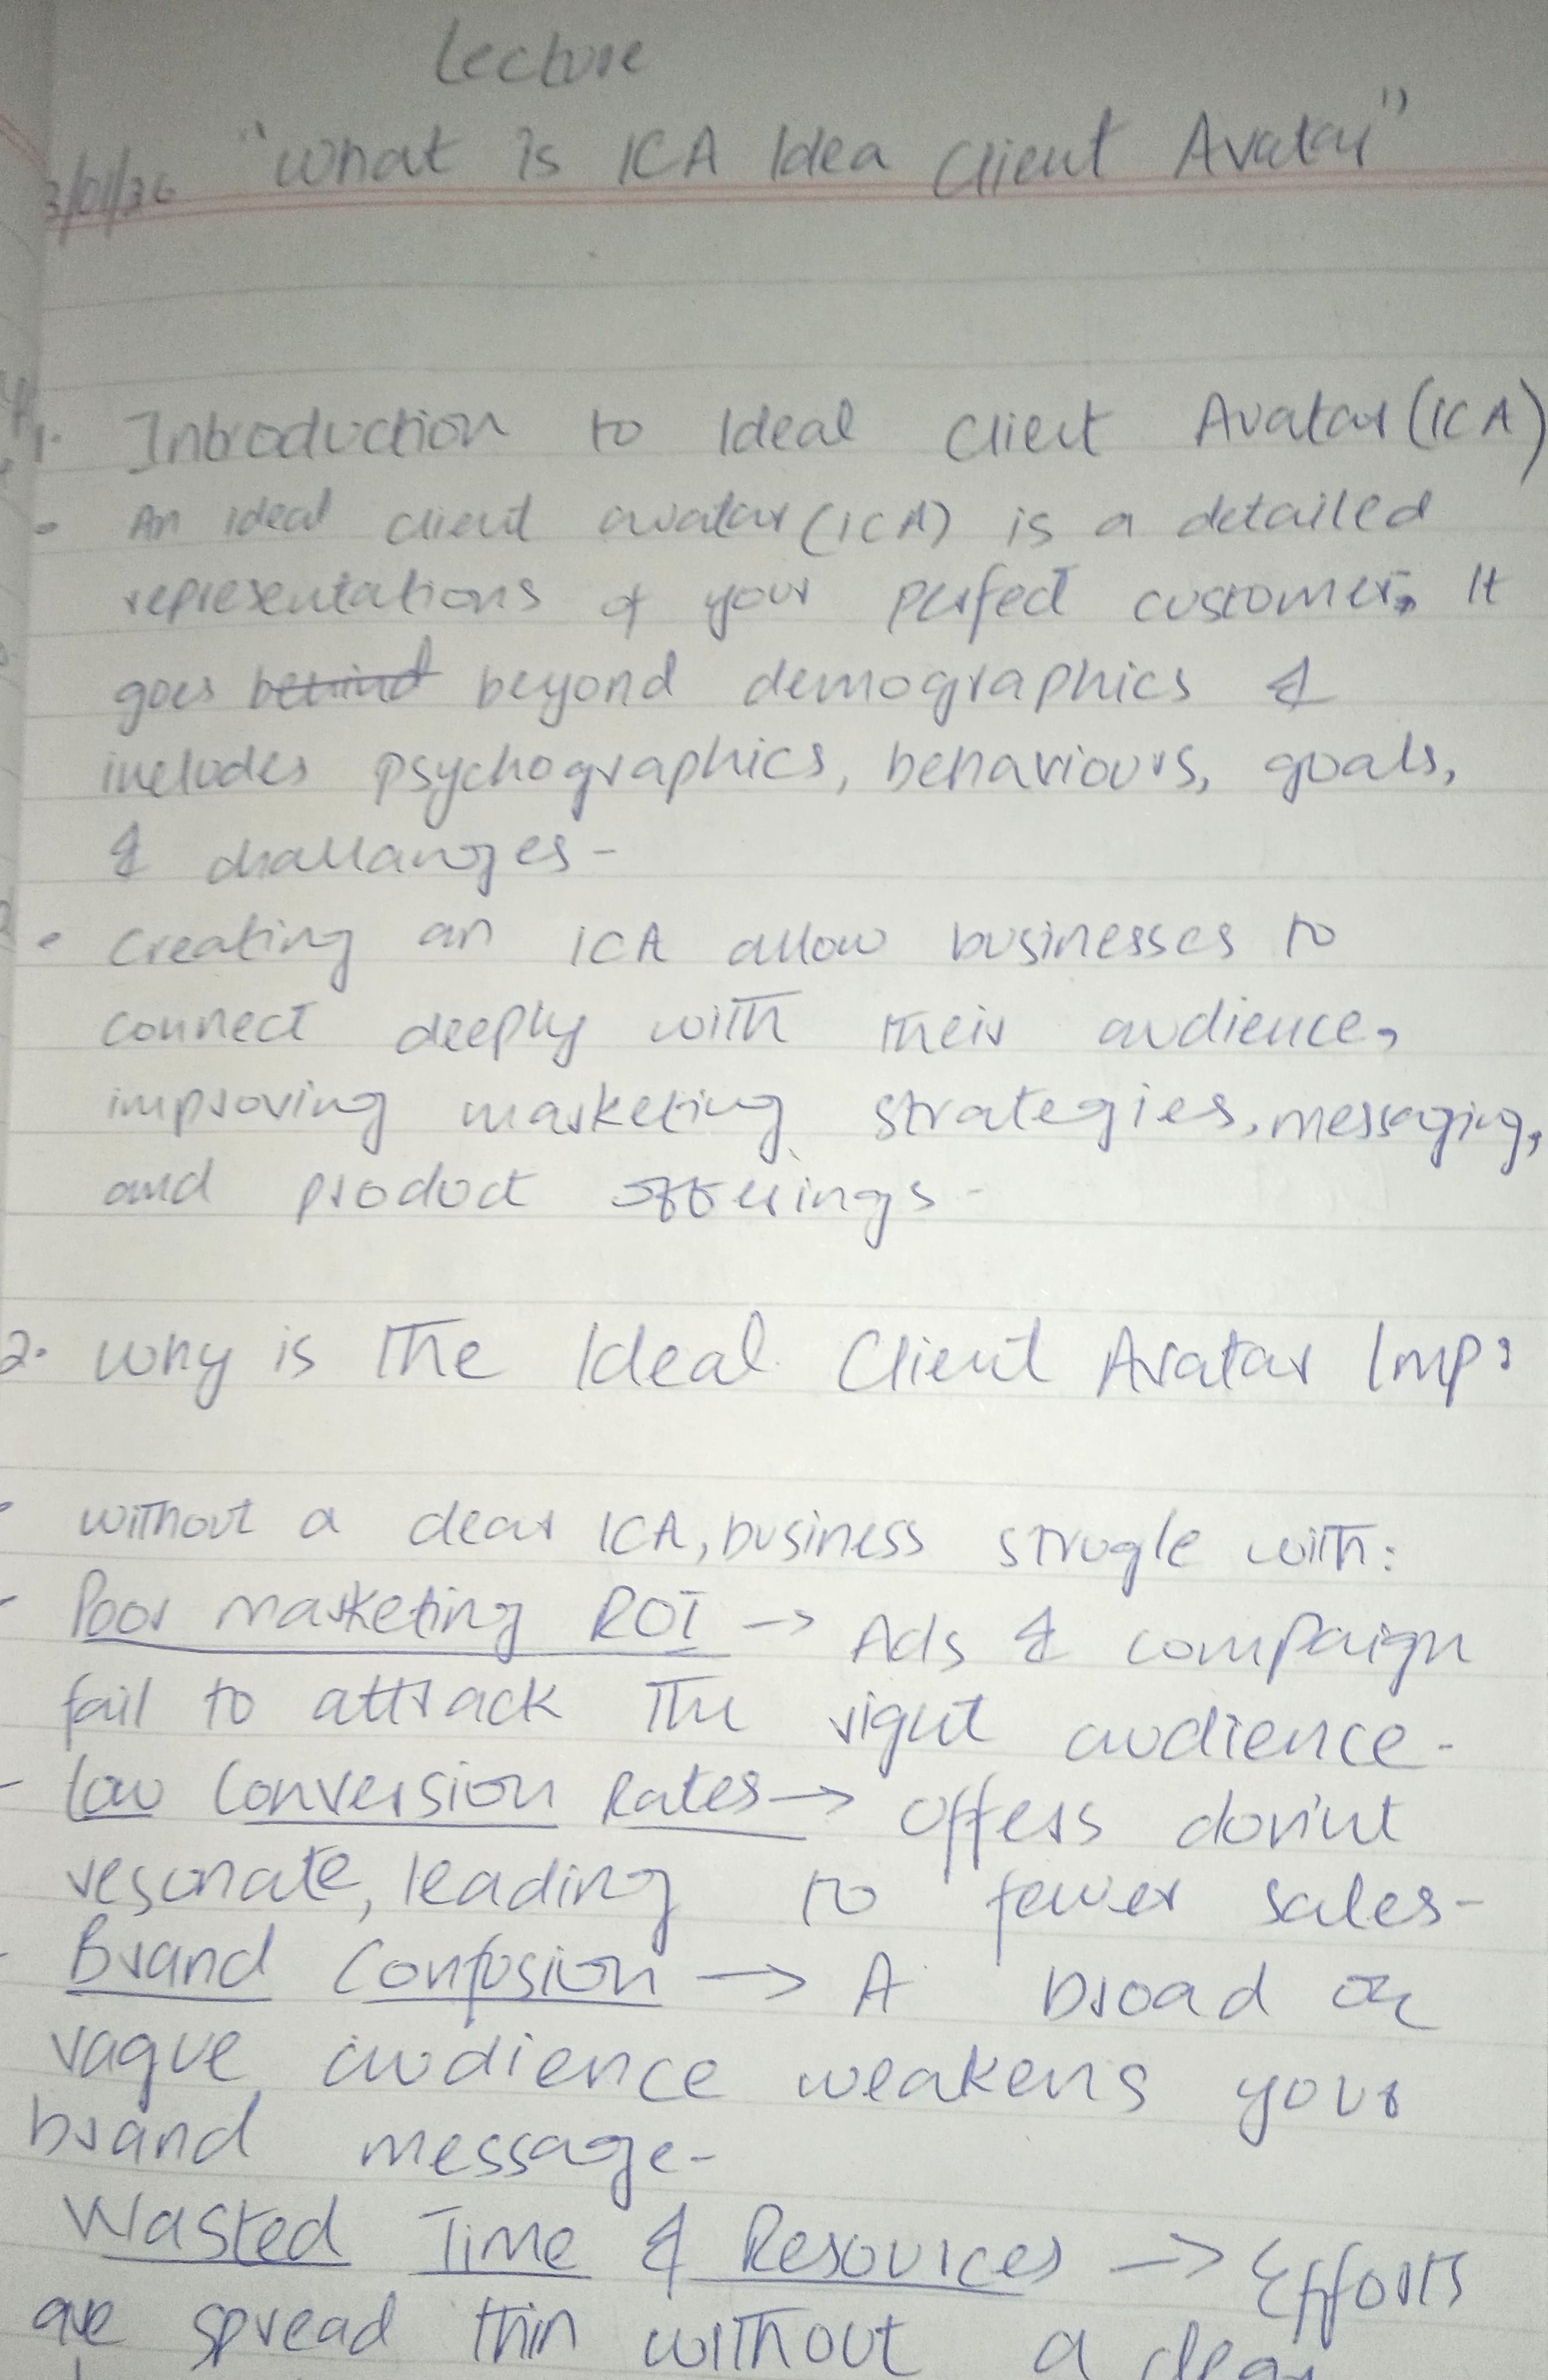 Lecture
"What is ICA Idea Client Avatar"
3/01/26
1. Introduction to Ideal Client Avatar (ICA)
• An ideal client avatar (ICA) is a detailed
representations of your perfect customer. It
goes behind beyond demographics &
includes psychographics, behaviours, goals,
& challanges-
• Creating an ICA allow businesses to
connect deeply with their audience,
improving marketing strategies, messaging,
and product offerings-
2. Why is the Ideal Client Avatar Imp:
without a clear ICA, business strugle with:
- Poor marketing ROI → Ads & compaign
fail to attrack the right audience-
- Low Conversion Rates → offers don'nt
resonate, leading to fewer sales-
- Brand Confusion → A broad or
vague audience weakens your
brand message-
Wasted Time & Resources → Efforts
are spread thin without a clear